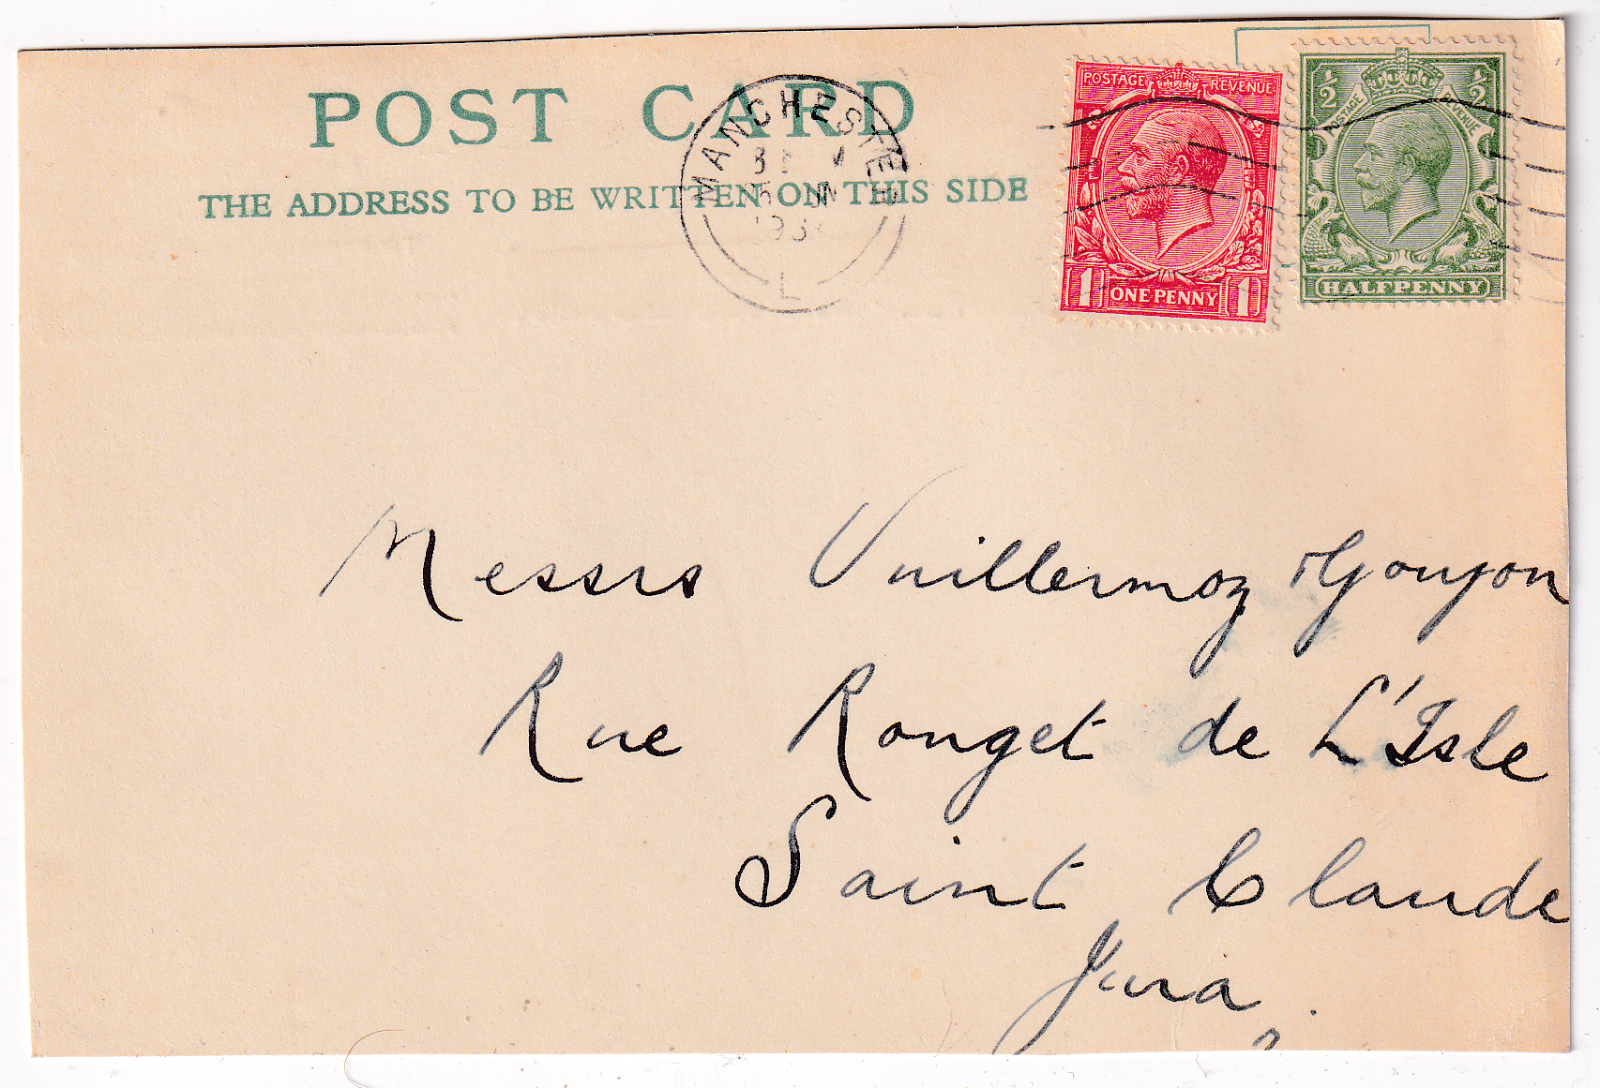 POST CARD
THE ADDRESS TO BE WRITTEN ON THIS SIDE
MANCHESTER
L
POSTAGE REVENUE
1 ONE PENNY 1
½ ½
POSTAGE REVENUE
HALFPENNY
Messrs Vuillermoz & Goujon
Rue Rouget de L'Isle
Saint Claude
Jura